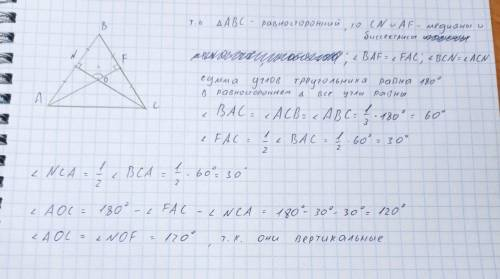 B
N
F
O
A
C
т.к. △ABC - равносторонний, то CN и AF - медианы и
биссектрисы
; ∠BAF = ∠FAC, ∠BCN = ∠ACN
сумма углов треугольника равна 180°
В равностороннем △ все углы равны
∠BAC = ∠ACB = ∠ABC = 1/3 · 180° = 60°
∠FAC = 1/2 ∠BAC = 1/2 · 60° = 30°
∠NCA = 1/2 ∠BCA = 1/2 · 60° = 30°
∠AOC = 180° - ∠FAC - ∠NCA = 180° - 30° - 30° = 120°
∠AOC = ∠NOF = 120°, т.к. они вертикальные